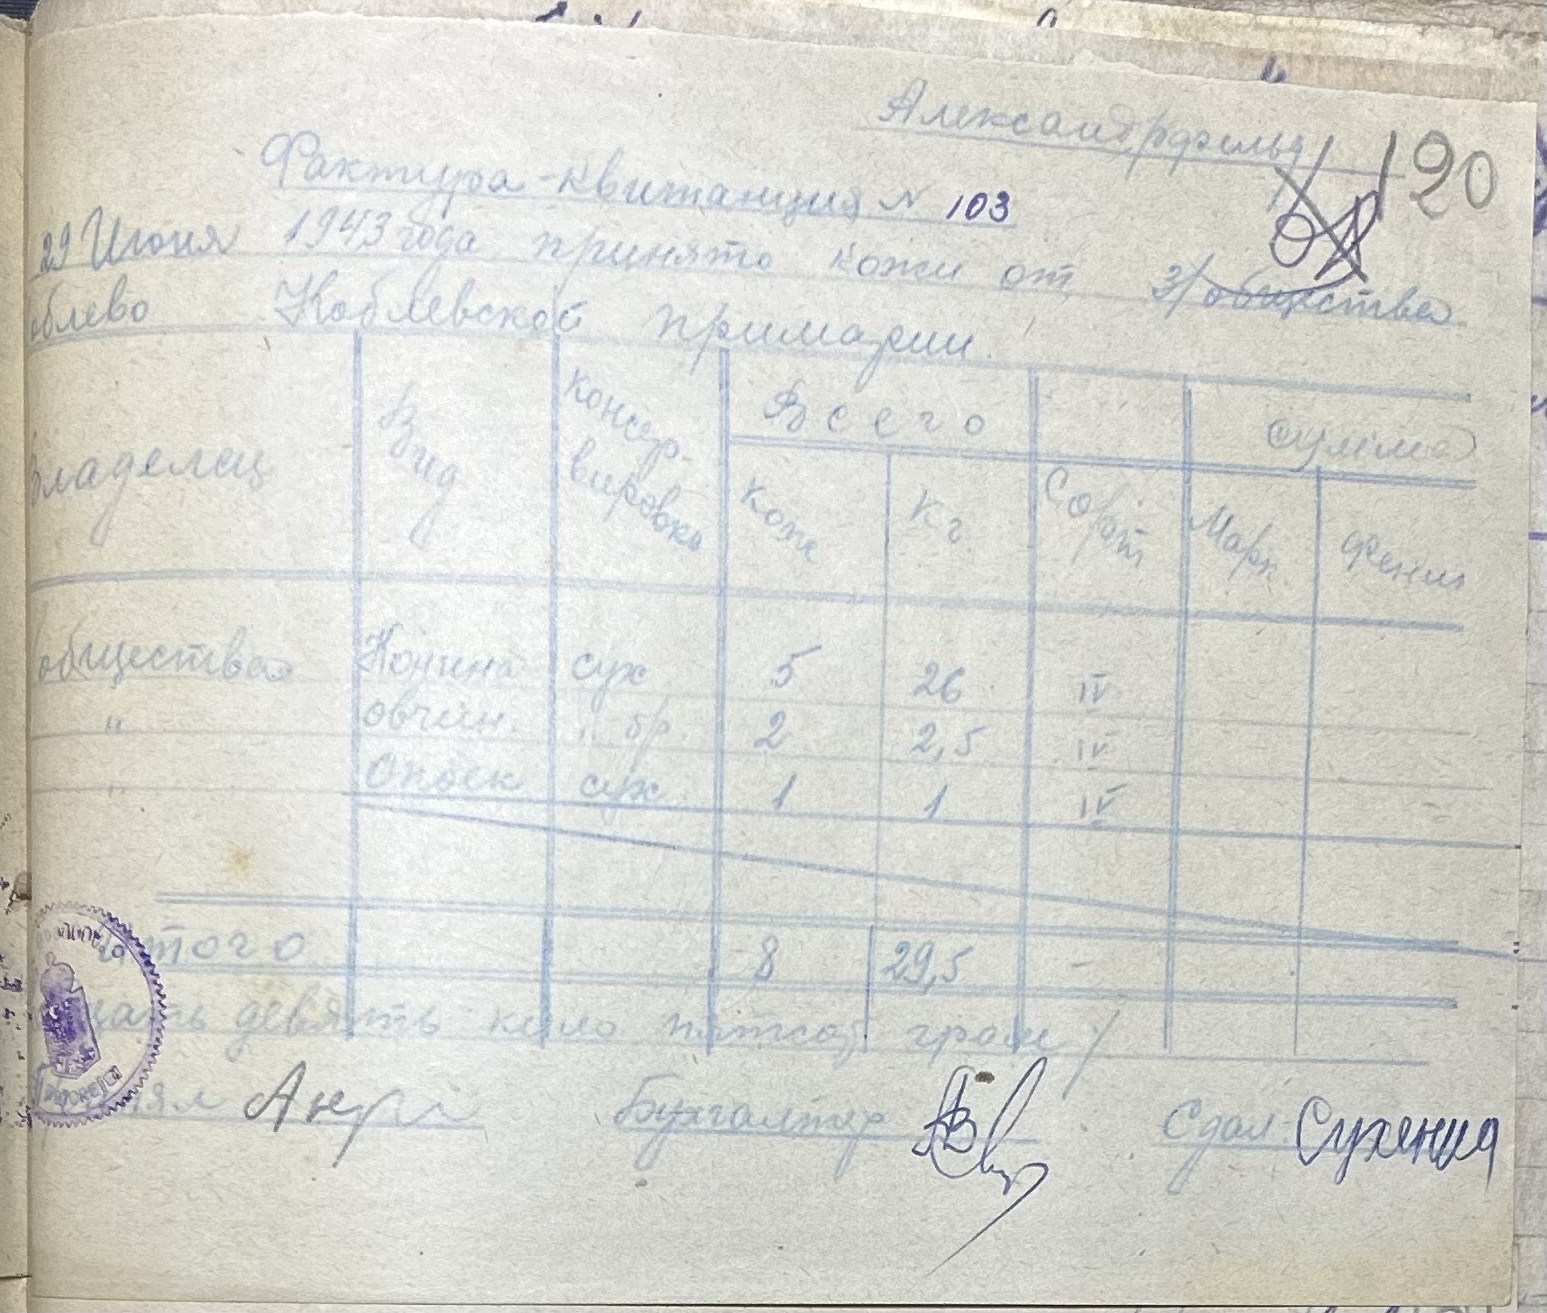 Александрфельд
120
Фактура-квитанция № 103
29 Июня 1943 года принято кожи от з/общества
облево Коблевской примарии.
Владелец Вид Консер-вировка Всего Сорт сумма
Кож Кг Марк Фениг
общества Конина сух 5 26 IV
" овчин. " бр. 2 2,5 IV
" Опоек сух. 1 1 IV
Итого 8 29,5 -
цать девять кило пятсот грам/
Принял Бухгалтер Сдал